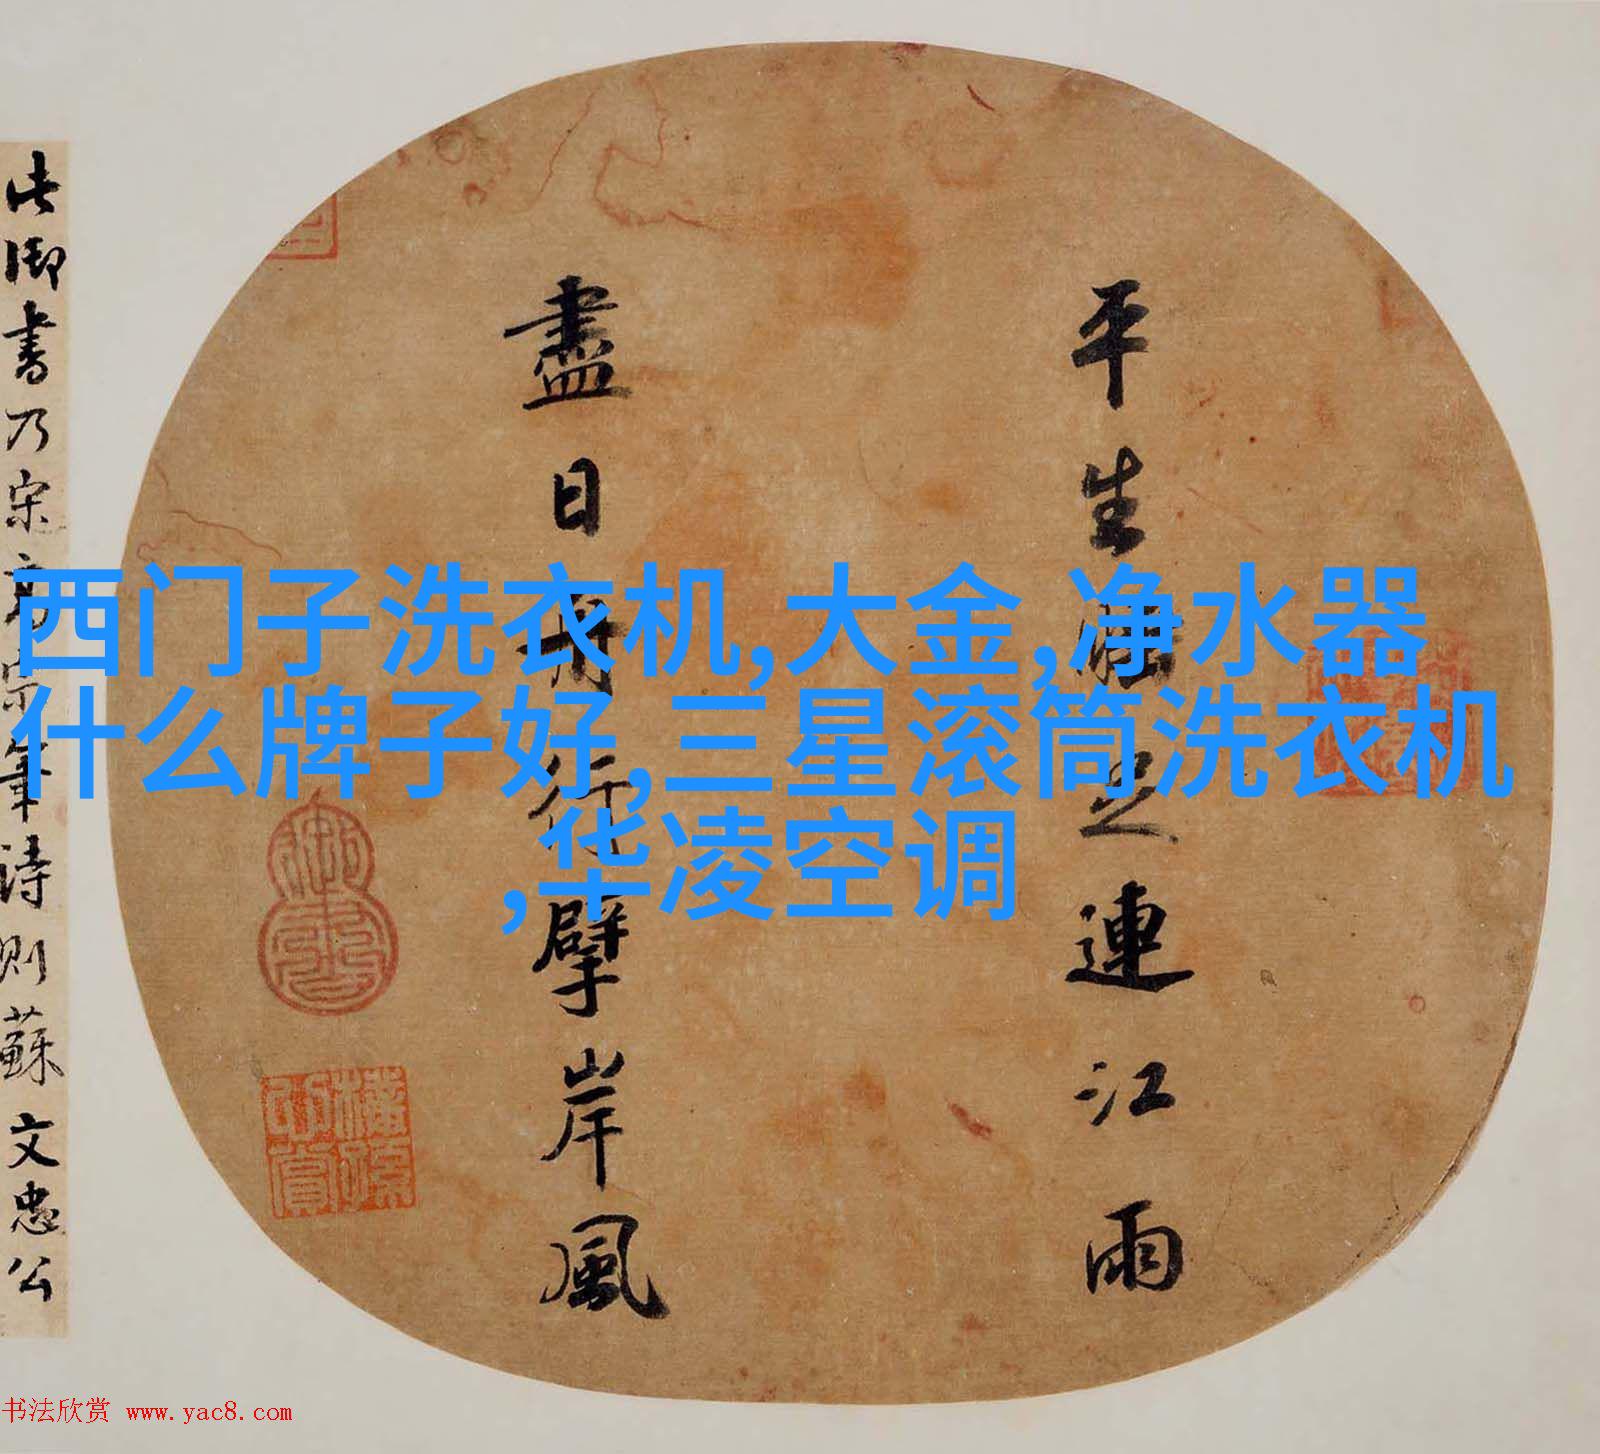 西门子洗衣机,大金,净水器
什么牌子好,三星滚筒洗衣机
,华凌空调
平生睡足連江雨
盡日舟行擘岸風
此御書乃宋高宗筆詩則蘇文忠公
书法欣赏 www.yac8.com